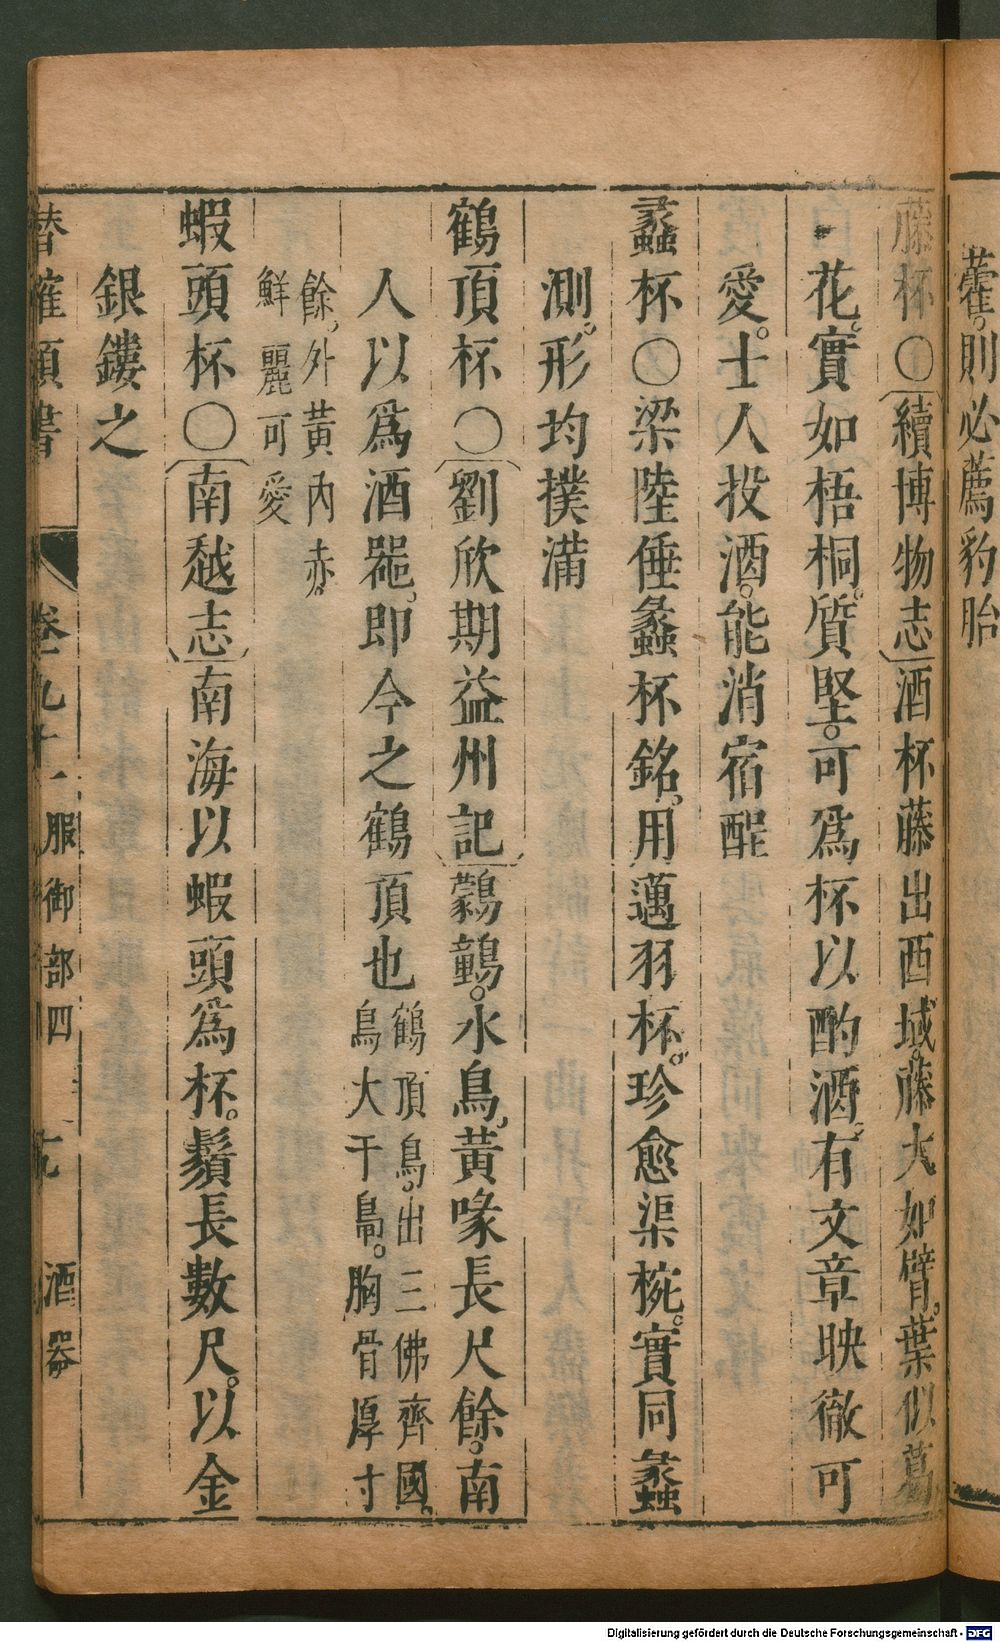 藿。則必薦豹胎
藤杯〇〔續博物志〕酒杯藤出西域。藤大如臂。葉似葛
花。實如梧桐。質堅。可爲杯以酌酒。有文章映徹可
愛。士人投酒。能消宿酲
蠡杯〇梁陸倕蠡杯銘。用邁羽杯。珍愈渠椀。實同蠡
測。形均撲滿
鶴頂杯〇〔劉欣期益州記〕鸏鶵。水鳥。黃喙長尺餘。南
人以爲酒器。即今之鶴頂也 鶴頂鳥。出三佛齊國。
鳥大于鳧。胸骨厚寸
餘。外黃內赤。
鮮麗可愛
蝦頭杯〇〔南越志〕南海以蝦頭爲杯。鬚長數尺。以金
銀鏤之
潛確類書 卷九十一 服御部四 酒器
Digitalisierung gefördert durch die Deutsche Forschungsgemeinschaft - DFG